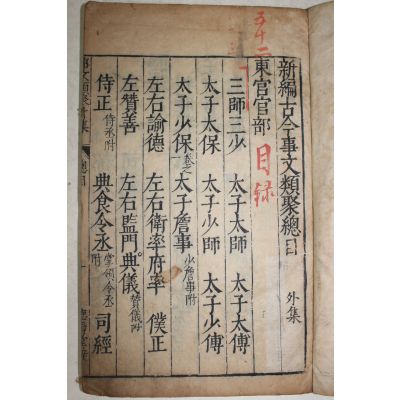 新編古今事文類聚總目 外集
東官官部 目録
三師三少 太子太師 太子太傅
太子太保 太子少師 太子少傅
太子少保 卷之一 太子詹事 少詹事附
左右諭德 左右衛率府率 僕正
左贊善 左右監門 典儀 贊儀附
侍正 侍丞附 典食令丞 掌領令丞附 司經